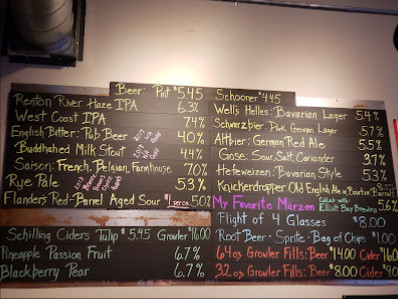 Beer: Pint $5.45
Renton River Haze IPA 6.3%
West Coast IPA 7.4%
English Bitter: Pub Beer 4.0%
Buddhahed Milk Stout 4.4%
Saison: French, Belgian, Farmhouse 7.0%
Rye Pale 5.3%
Flanders Red-Barrel Aged Sour 5.0%
Schilling Ciders Tulip $5.45 Growler $16.00
Pineapple Passion Fruit 6.7%
Blackberry Pear 6.7%
Schooner $4.45
Wells Helles: Bavarian Lager 5.4%
Schwarzbier: Dark German Lager 5.7%
Altbier: German Red Ale 5.5%
Gose: Sour, Salt, Coriander 3.7%
Hefeweizen: Bavarian Style 5.3%
Knickerdropper Old English Ale in Bourbon Barrel
My Favorite Marzen Collab with Elliott Bay Brewing 5.6%
Flight of 4 Glasses $8.00
Root Beer - Sprite - Bag of Chips $1.00
64oz Growler Fills: Beer $14.00 Cider $16.0
32oz Growler Fills: Beer $8.00 Cider $9.0